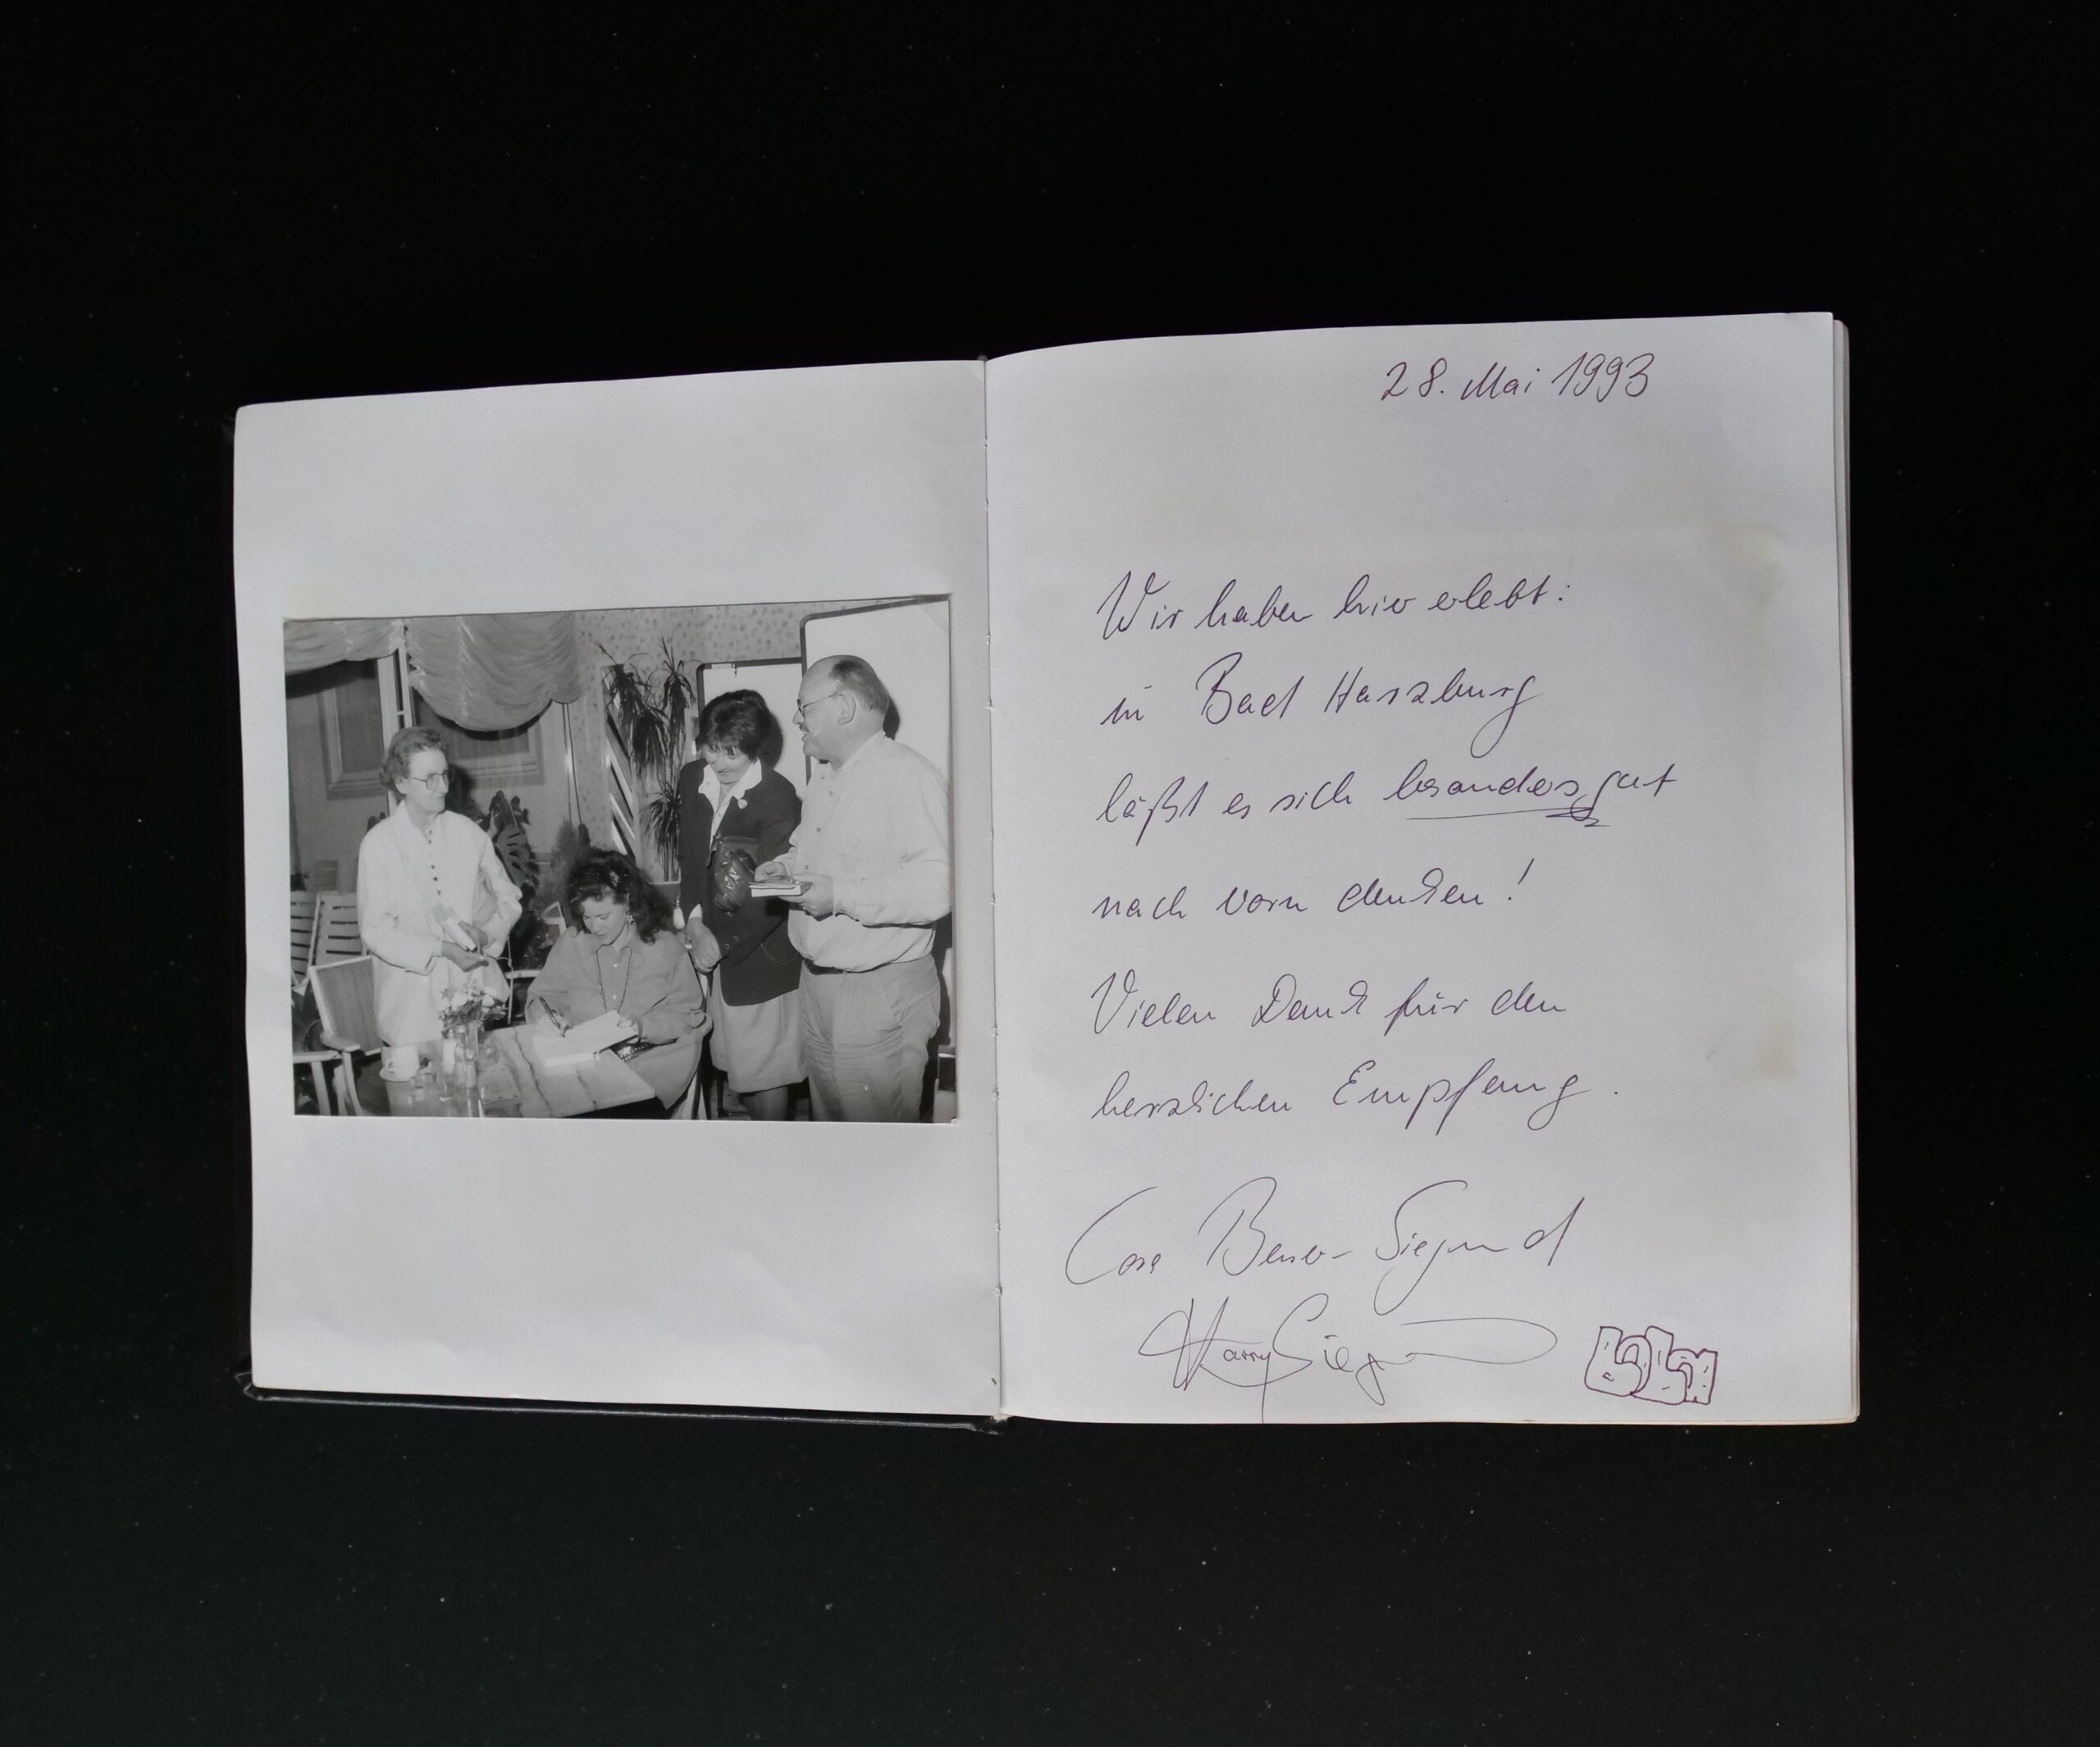 28. Mai 1993
Wir haben hier erlebt:
in Bad Harzburg
läßt es sich besonders gut
nach vorn denken!
Vielen Dank für den
herzlichen Empfang.
Cora Besser-Siegmund
Harry Siegmund